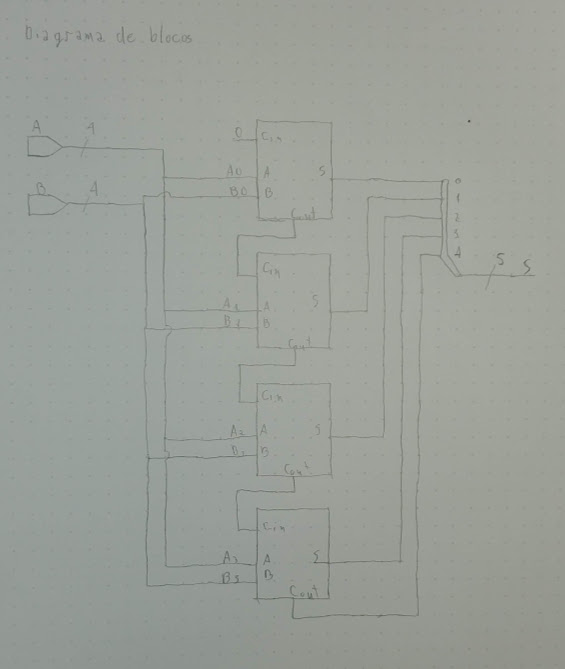 Diagrama de blocos
A 4
B 4
0 Cin
A0 A S
B0 B
Cout
Cin
A1 A S
B B
Cout
Cin
A2 A S
B2 B
Cout
Cin
A3 A S
B3 B
Cout
0
1
2
3
4
5 S